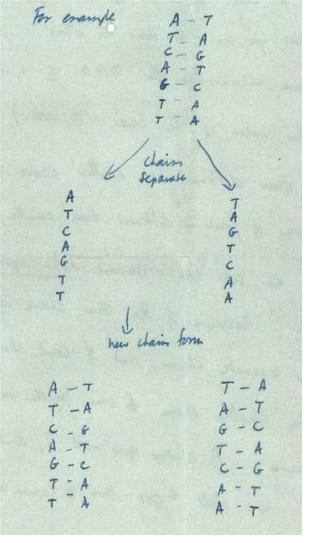 For example
A - T
T - A
C - G
A - T
G - C
T - A
T - A
Chains
separate
A
T
C
A
G
T
T
T
A
G
T
C
A
A
new chains form
A - T T - A
T - A A - T
C - G G - C
A - T T - A
G - C C - G
T - A A - T
T - A A - T